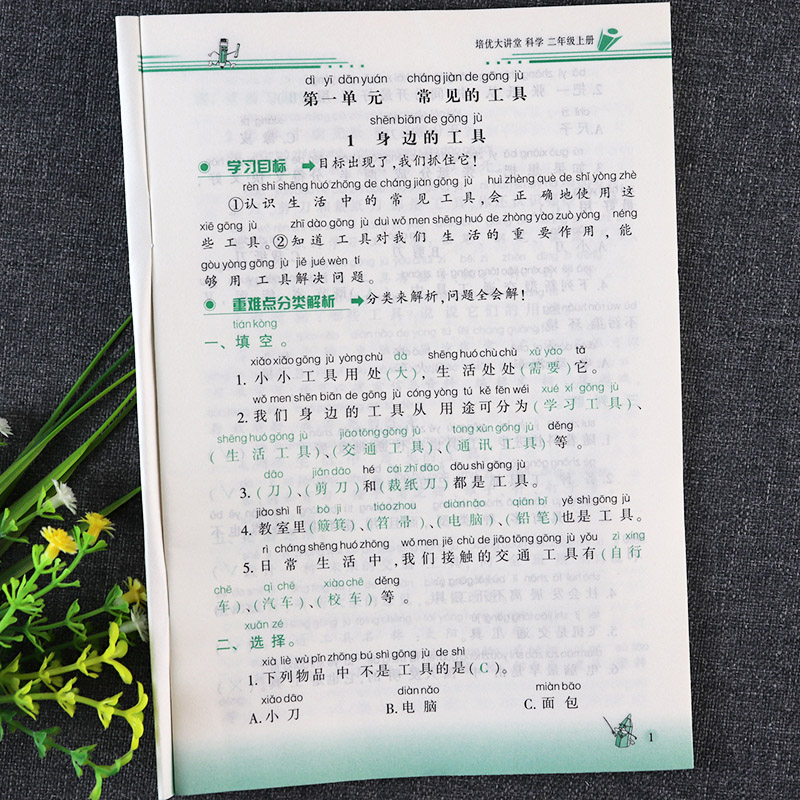 培优大讲堂 科学 二年级上册
dì yī dānyuán chángjiàn de gōng jù
第一单元 常见的工具
shēnbiān de gōng jù
1 身边的工具
学习目标 ➡目标出现了,我们抓住它!
rèn shi shēng huó zhōng de cháng jiàn gōng jù huì zhèng què de shǐ yòng zhè
①认识生活中的常见工具,会正确地使用这
xiē gōng jù zhī dào gōng jù duì wǒ men shēng huó de zhòng yào zuò yòng néng
些工具。②知道工具对我们生活的重要作用,能
gòu yòng gōng jù jiě jué wèn tí
够用工具解决问题。
重难点分类解析 ➡分类来解析,问题全会解!
tián kòng
一、填空。
xiǎo xiǎo gōng jù yòng chù dà shēng huó chù chù xū yào tā
1.小小工具用处(大),生活处处(需要)它。
wǒ men shēn biān de gōng jù cóng yòng tú kě fēn wéi xué xí gōng jù
2.我们身边的工具从用途可分为(学习工具)、
shēng huó gōng jù jiāo tōng gōng jù tōng xùn gōng jù děng
(生活工具)、(交通工具)、(通讯工具)等。
dāo jiǎn dāo hé cái zhǐ dāo dōu shì gōng jù
3.(刀)、(剪刀)和(裁纸刀)都是工具。
jiào shì lǐ bò ji tiáo zhou diàn nǎo qiān bǐ yě shì gōng jù
4.教室里(簸箕)、(笤帚)、(电脑)、(铅笔)也是工具。
rì cháng shēng huó zhōng wǒ men jiē chù de jiāo tōng gōng jù yǒu zì xíng
5.日常生活中,我们接触的交通工具有(自行
chē qì chē xiào chē děng
车)、(汽车)、(校车)等。
xuǎn zé
二、选择。
xià liè wù pǐn zhōng bú shì gōng jù de shì
1.下列物品中不是工具的是(C)。
xiǎo dāo diàn nǎo miàn bāo
A.小刀 B.电脑 C.面包
1